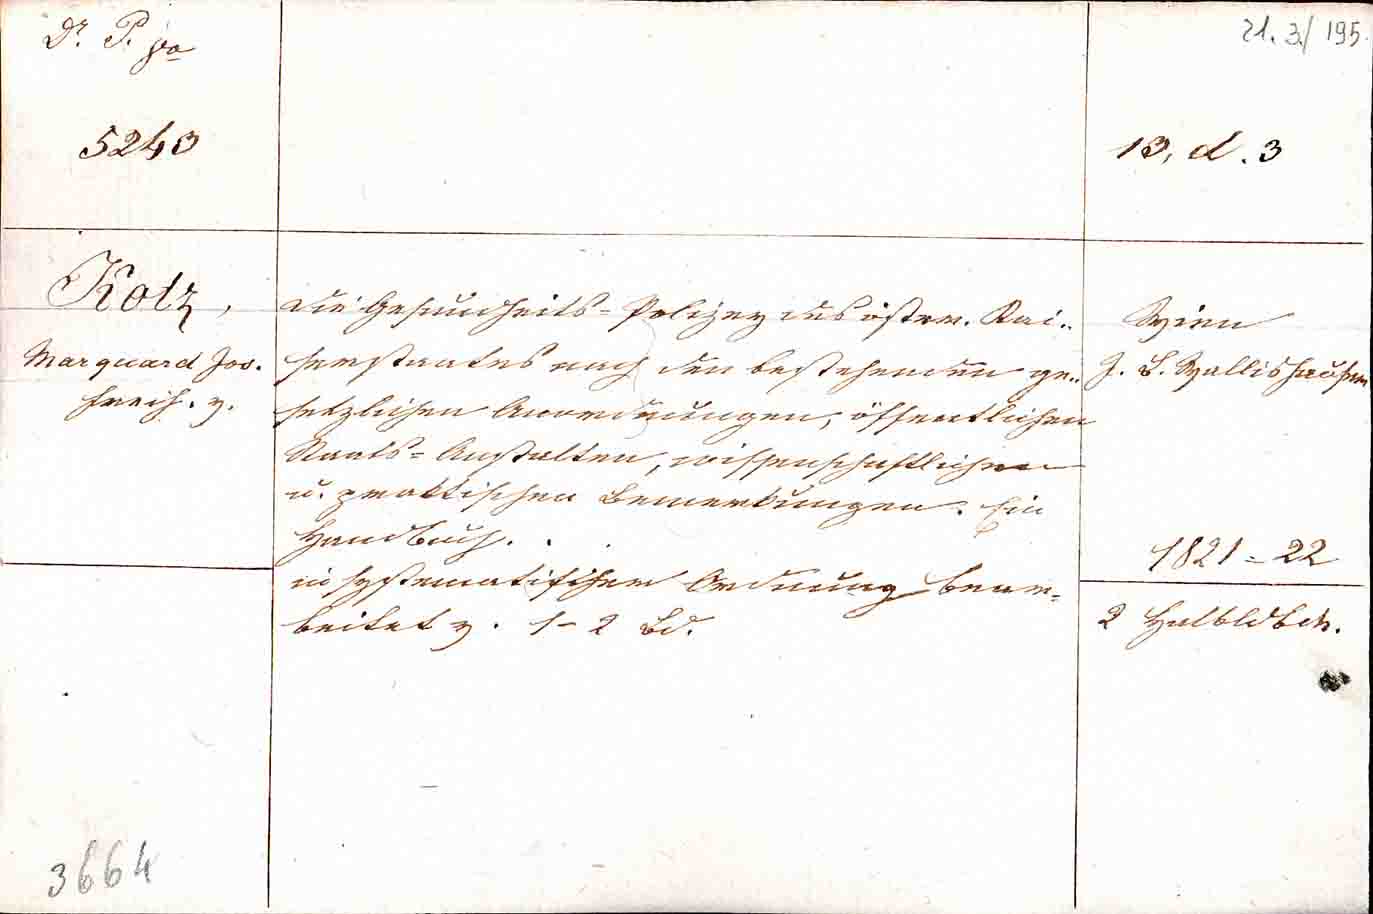 Dr. P. jva
21. 3./195.
5243
13, d. 3
Kotz,
Marquard Jos.
Freih. v.
Die Gesundheits=Polizey des österr. Kai=
serstaates nach den bestehenden ge=
setzlichen Anordnungen, öffentlichen
Staats=Anstalten, wissenschaftlichen
u. praktischen Bemerkungen. Ein
Handbuch. . .
in systematischer Ordnung bear=
beitet v. 1-2 Bd.
Wien
J. B. Wallishausser
1821=22
2 Halbldbde.
3664